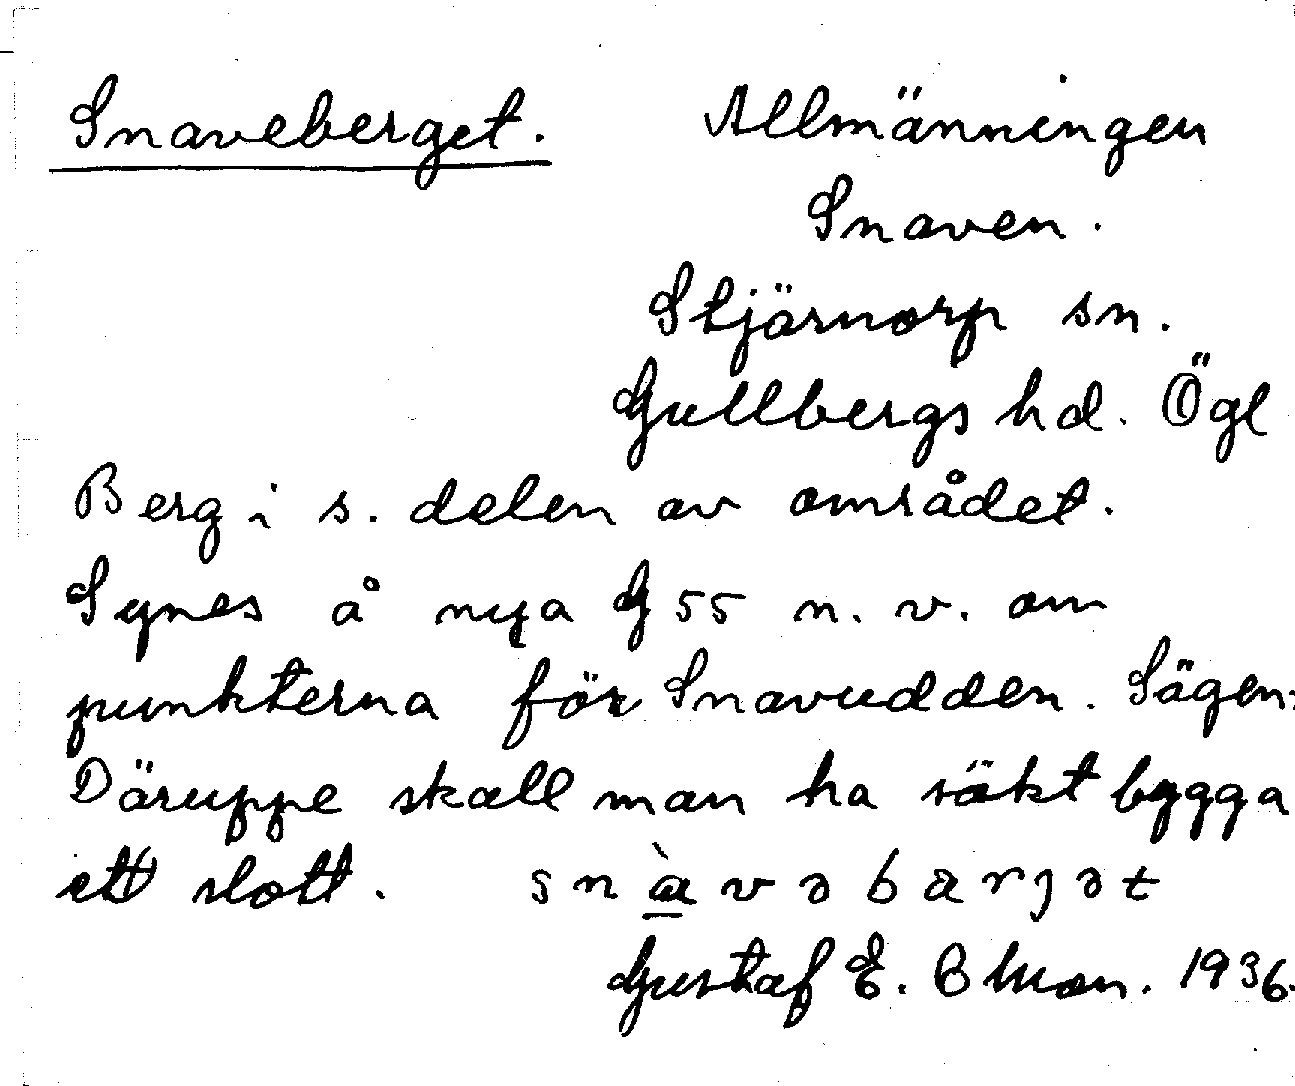 Snaveberget. Allmänningen
Snaven.
Stjärnorp sn.
Gullbergs hd. Ögl
Berg i s. delen av området.
Synes å nya G 55 n. v. om
punkterna för Snavudden. Sägen:
Däruppe skall man ha sökt bygga
ett slott.
Gustaf E. 1936.